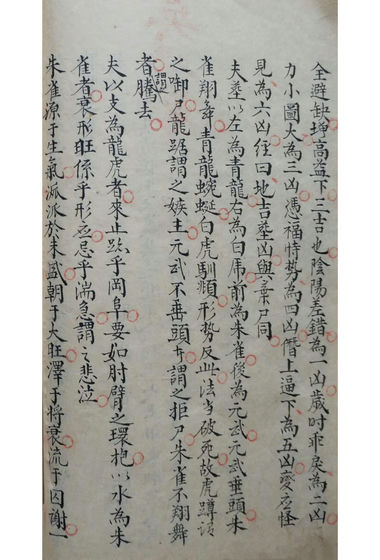 全避缺增高益下三吉也陰陽差錯為一凶歲时乖戾為二凶
力小圖大為三凶憑福恃勢為四凶僭上逼下為五凶變应怪
見為六凶经曰地吉葬凶與棄尸同
夫葬以左為青龍右為白虎前為朱雀後為元武元武垂頭朱
雀翔舞青龍蜿蜒白虎馴頫形势反此法当破死故虎蹲谓
之啣尸龍踞謂之嫉主元武不垂頭者謂之拒尸朱雀不翔舞
者謂騰去
夫以支為龍虎者來止跡乎岡阜要如肘臂之環抱以水為朱
雀者衰形旺係乎形应忌乎湍急謂之悲泣
朱雀源于生氣派派於未盛朝于大旺澤于将衰流于囚谢一